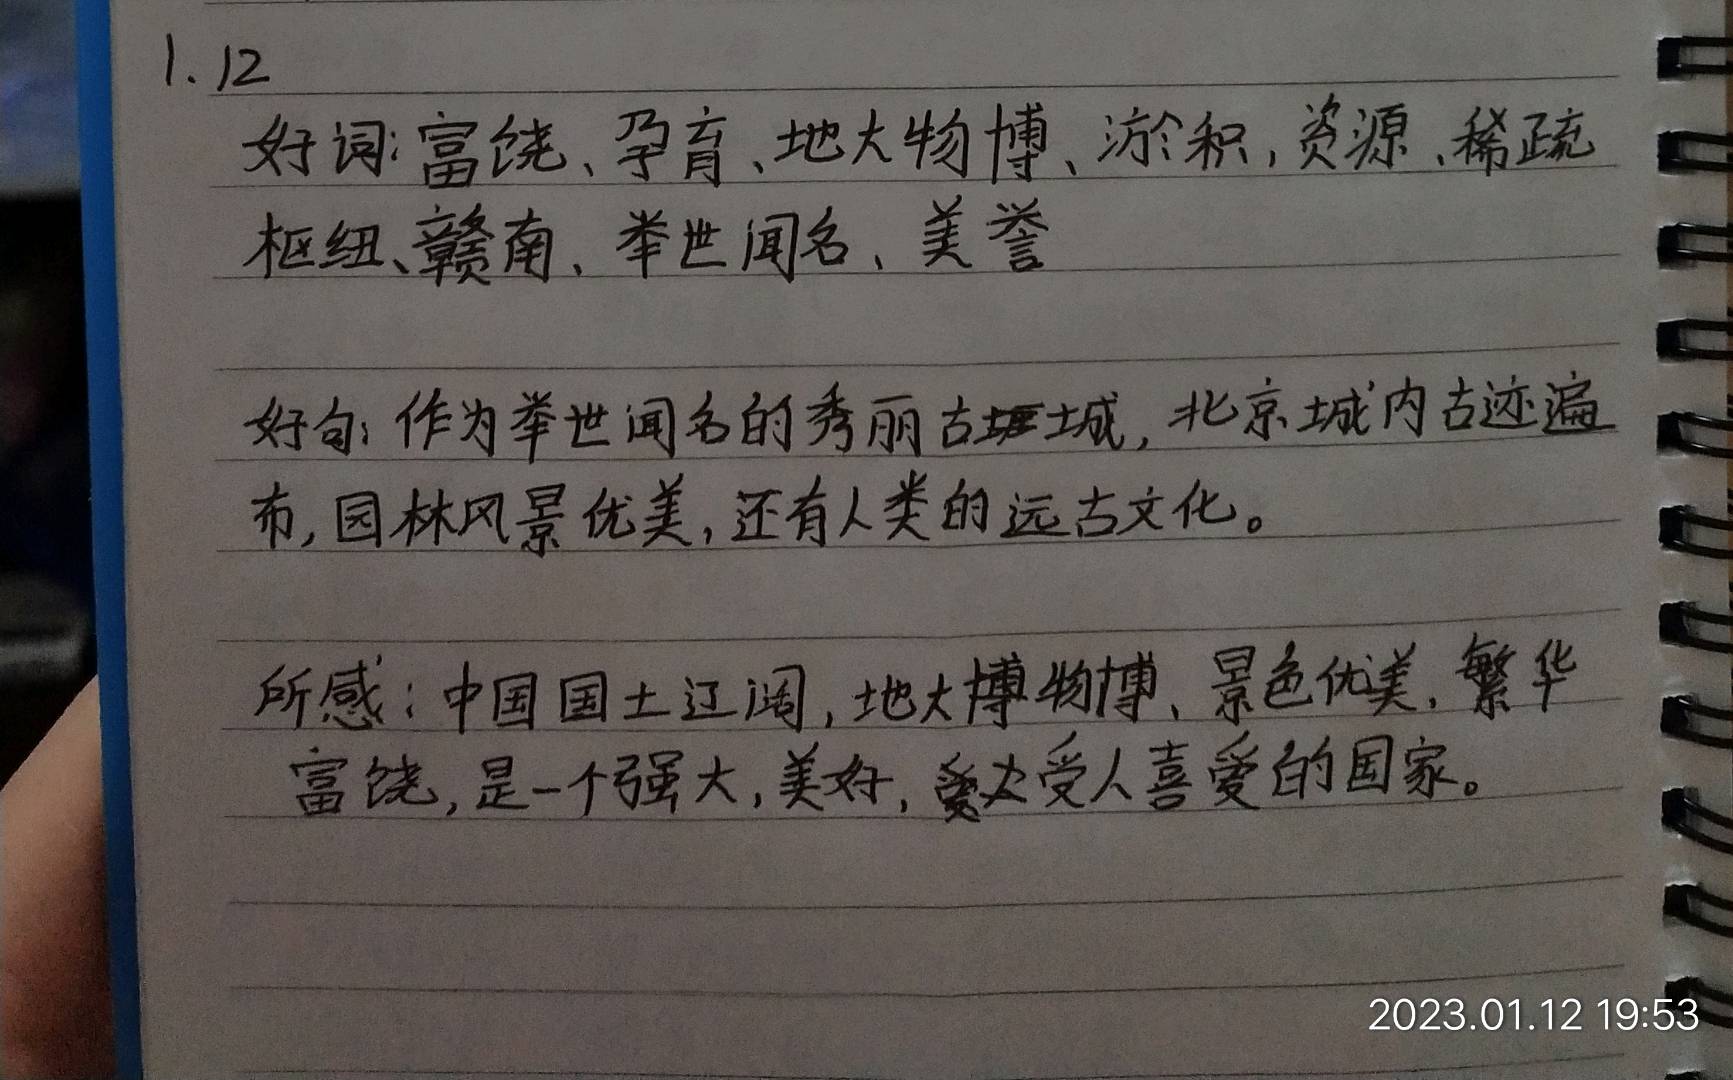 1.12
好词:富饶、孕育、地大物博、淤积,资源、稀疏
枢纽、赣南、举世闻名、美誉
好句:作为举世闻名的秀丽古城,北京城内古迹遍
布,园林风景优美,还有人类的远古文化。
所感:中国国土辽阔,地大物博、景色优美,繁华
富饶,是一个强大,美好,受人喜爱的国家。
2023.01.12 19:53